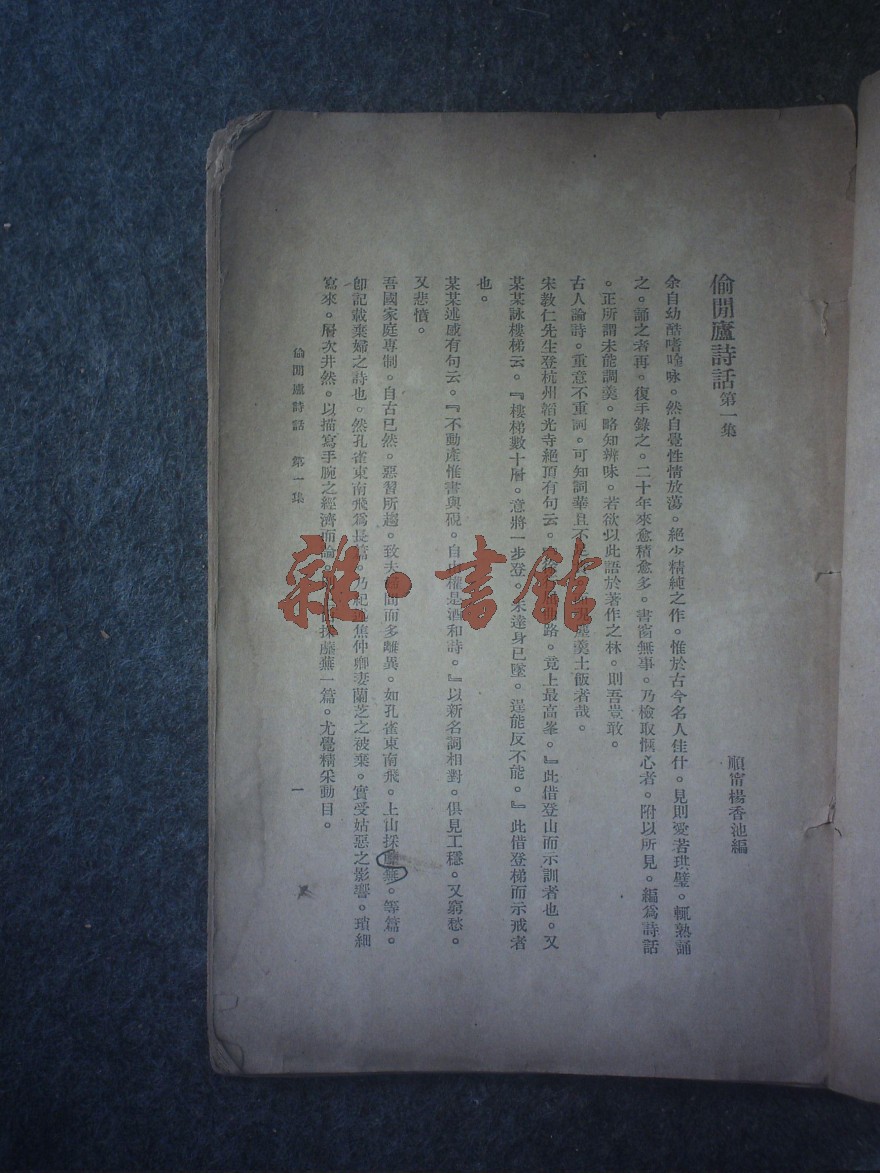 偷閒廬詩話第一集
順甯楊香池編
余自幼酷嗜吟咏。然自覺性情放蕩。絕少精純之作。惟於古今名人佳什。見則愛若珙璧。輒熟誦
之。誦之者再。復手錄之。二十年來愈積愈多。書窗無事。乃檢取愜心者。附以所見。編爲詩話
。正所謂未能調羹。略知辨味。若欲以此語於著作之林。則吾豈敢。
古人論詩。重意不重詞。可知詞華且不羹土飯者哉。
宋教仁先生登杭州韜光寺絕頂有句云。路。竟上最高峯。』此借登山而示訓者也。又
某某詠樓梯云。『樓梯數十層。意將一步登。未達身已墜。逞能反不能。』此借登梯而示戒者
也。
某某述感有句云。『不動產惟書與硯。自由權是酒和詩。』以新名詞相對。俱見工穩。又窮愁。
又悲憤。
吾國家庭專制。自古已然。惡習所趨。致夫間而多離異。如孔雀東南飛。上山採蘼蕪。等篇。
卽記載棄婦之詩也。然孔雀東南飛爲長篇。乃紀焦仲卿妻蘭芝之被棄。實受姑惡之影響。瑣細
寫來。層次井然。以描寫手腕之經濟而論。採蘼蕪一篇。尤覺精采動目。
偷閒廬詩話 第一集
一
雜·書館